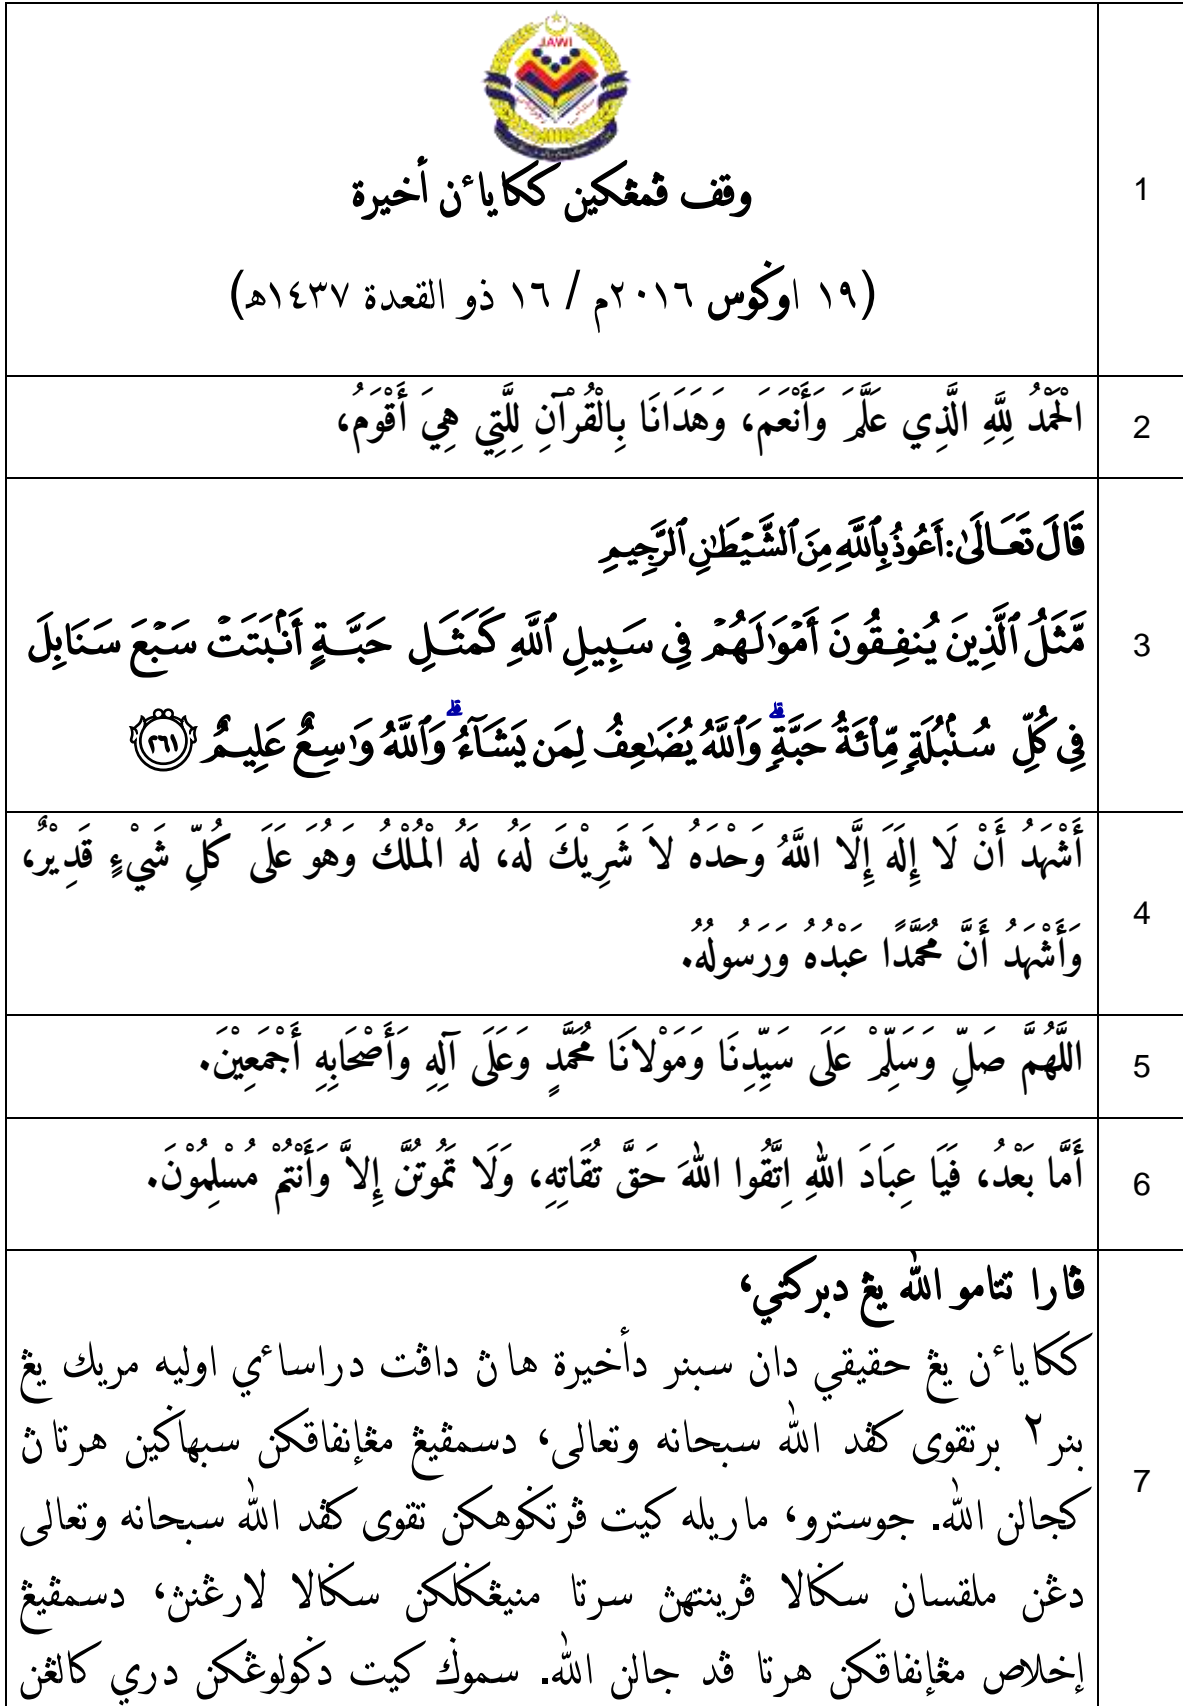 JAWI
وقف ڤمڠكين ككاياءن أخيرة
(١٩ اوݢوس ٢٠١٦م / ١٦ ذو القعدة ١٤٣٧هـ)
1
الْحَمْدُ لِلَّهِ الَّذِي عَلَّمَ وَأَنْعَمَ، وَهَدَانَا بِالْقُرْآنِ لِلَّتِي هِيَ أَقْوَمُ،
2
قَالَ تَعَالَىٰ: أَعُوذُ بِٱللَّهِ مِنَ ٱلشَّيْطَٰنِ ٱلرَّجِيمِ
مَّثَلُ ٱلَّذِينَ يُنفِقُونَ أَمْوَٰلَهُمْ فِى سَبِيلِ ٱللَّهِ كَمَثَلِ حَبَّةٍ أَنۢبَتَتْ سَبْعَ سَنَابِلَ
فِى كُلِّ سُنۢبُلَةٍ مِّا۟ئَةُ حَبَّةٍ ۗ وَٱللَّهُ يُضَٰعِفُ لِمَن يَشَآءُ ۗ وَٱللَّهُ وَٰسِعٌ عَلِيمٌ ﴿٢٦١﴾
3
أَشْهَدُ أَنْ لَا إِلَهَ إِلَّا اللَّهُ وَحْدَهُ لاَ شَرِيْكَ لَهُ، لَهُ الْمُلْكُ وَهُوَ عَلَى كُلِّ شَيْءٍ قَدِيْرٌ،
وَأَشْهَدُ أَنَّ مُحَمَّدًا عَبْدُهُ وَرَسُولُهُ.
4
اللَّهُمَّ صَلِّ وَسَلِّمْ عَلَى سَيِّدِنَا وَمَوْلانَا مُحَمَّدٍ وَعَلَى آلِهِ وَأَصْحَابِهِ أَجْمَعِيْنَ.
5
أَمَّا بَعْدُ، فَيَا عِبَادَ اللهِ اِتَّقُوا اللهَ حَقَّ تُقَاتِهِ، وَلَا تَمُوتُنَّ إِلاَّ وَأَنْتُمْ مُسْلِمُوْنَ.
6
ڤارا تتامو الله يڠ دبركتي،
ككاياءن يڠ حقيقي دان سبنر دأخيرة هاڽ داڤت دراساءي اوليه مريك يڠ
بنر٢ برتقوى كڤد الله سبحانه وتعالى، دسمڤيڠ مڠإنفاقكن سبهاݢين هرتاڽ
كجالن الله. جوسترو، ماريله كيت ڤرتݢوهكن تقوى كڤد الله سبحانه وتعالى
دڠن ملقسان سݢالا ڤرينتهڽ سرتا منيڠݢلكن سݢالا لارڠنڽ، دسمڤيڠ
إخلاص مڠإنفاقكن هرتا ڤد جالن الله. سموݢ كيت دݢولوڠكن دري كالڠن
7